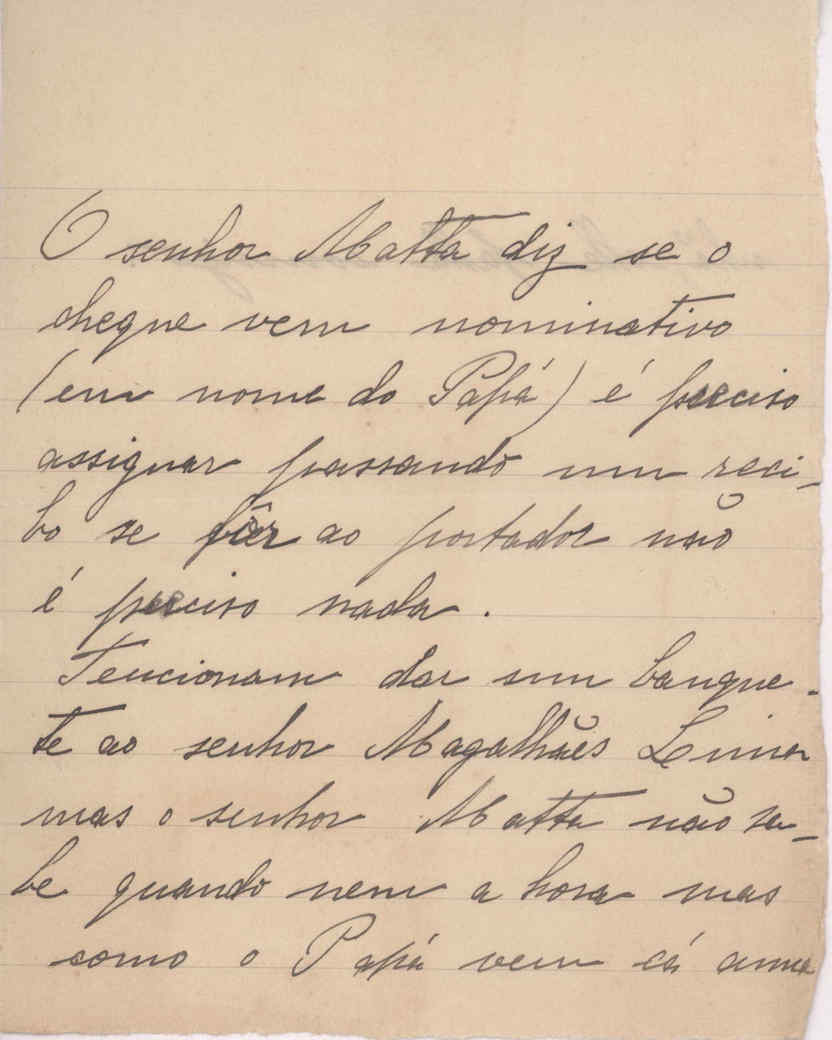 O senhor Matta diz se o
cheque vem nominativo
(em nome do Papá) é preciso
assignar passando um reci-
bo se fôr ao portador não
é preciso nada.
Tencionam dar um banque-
te ao senhor Magalhães Lima
mas o senhor Matta não sa-
be quando nem a hora mas
como o Papá vem cá